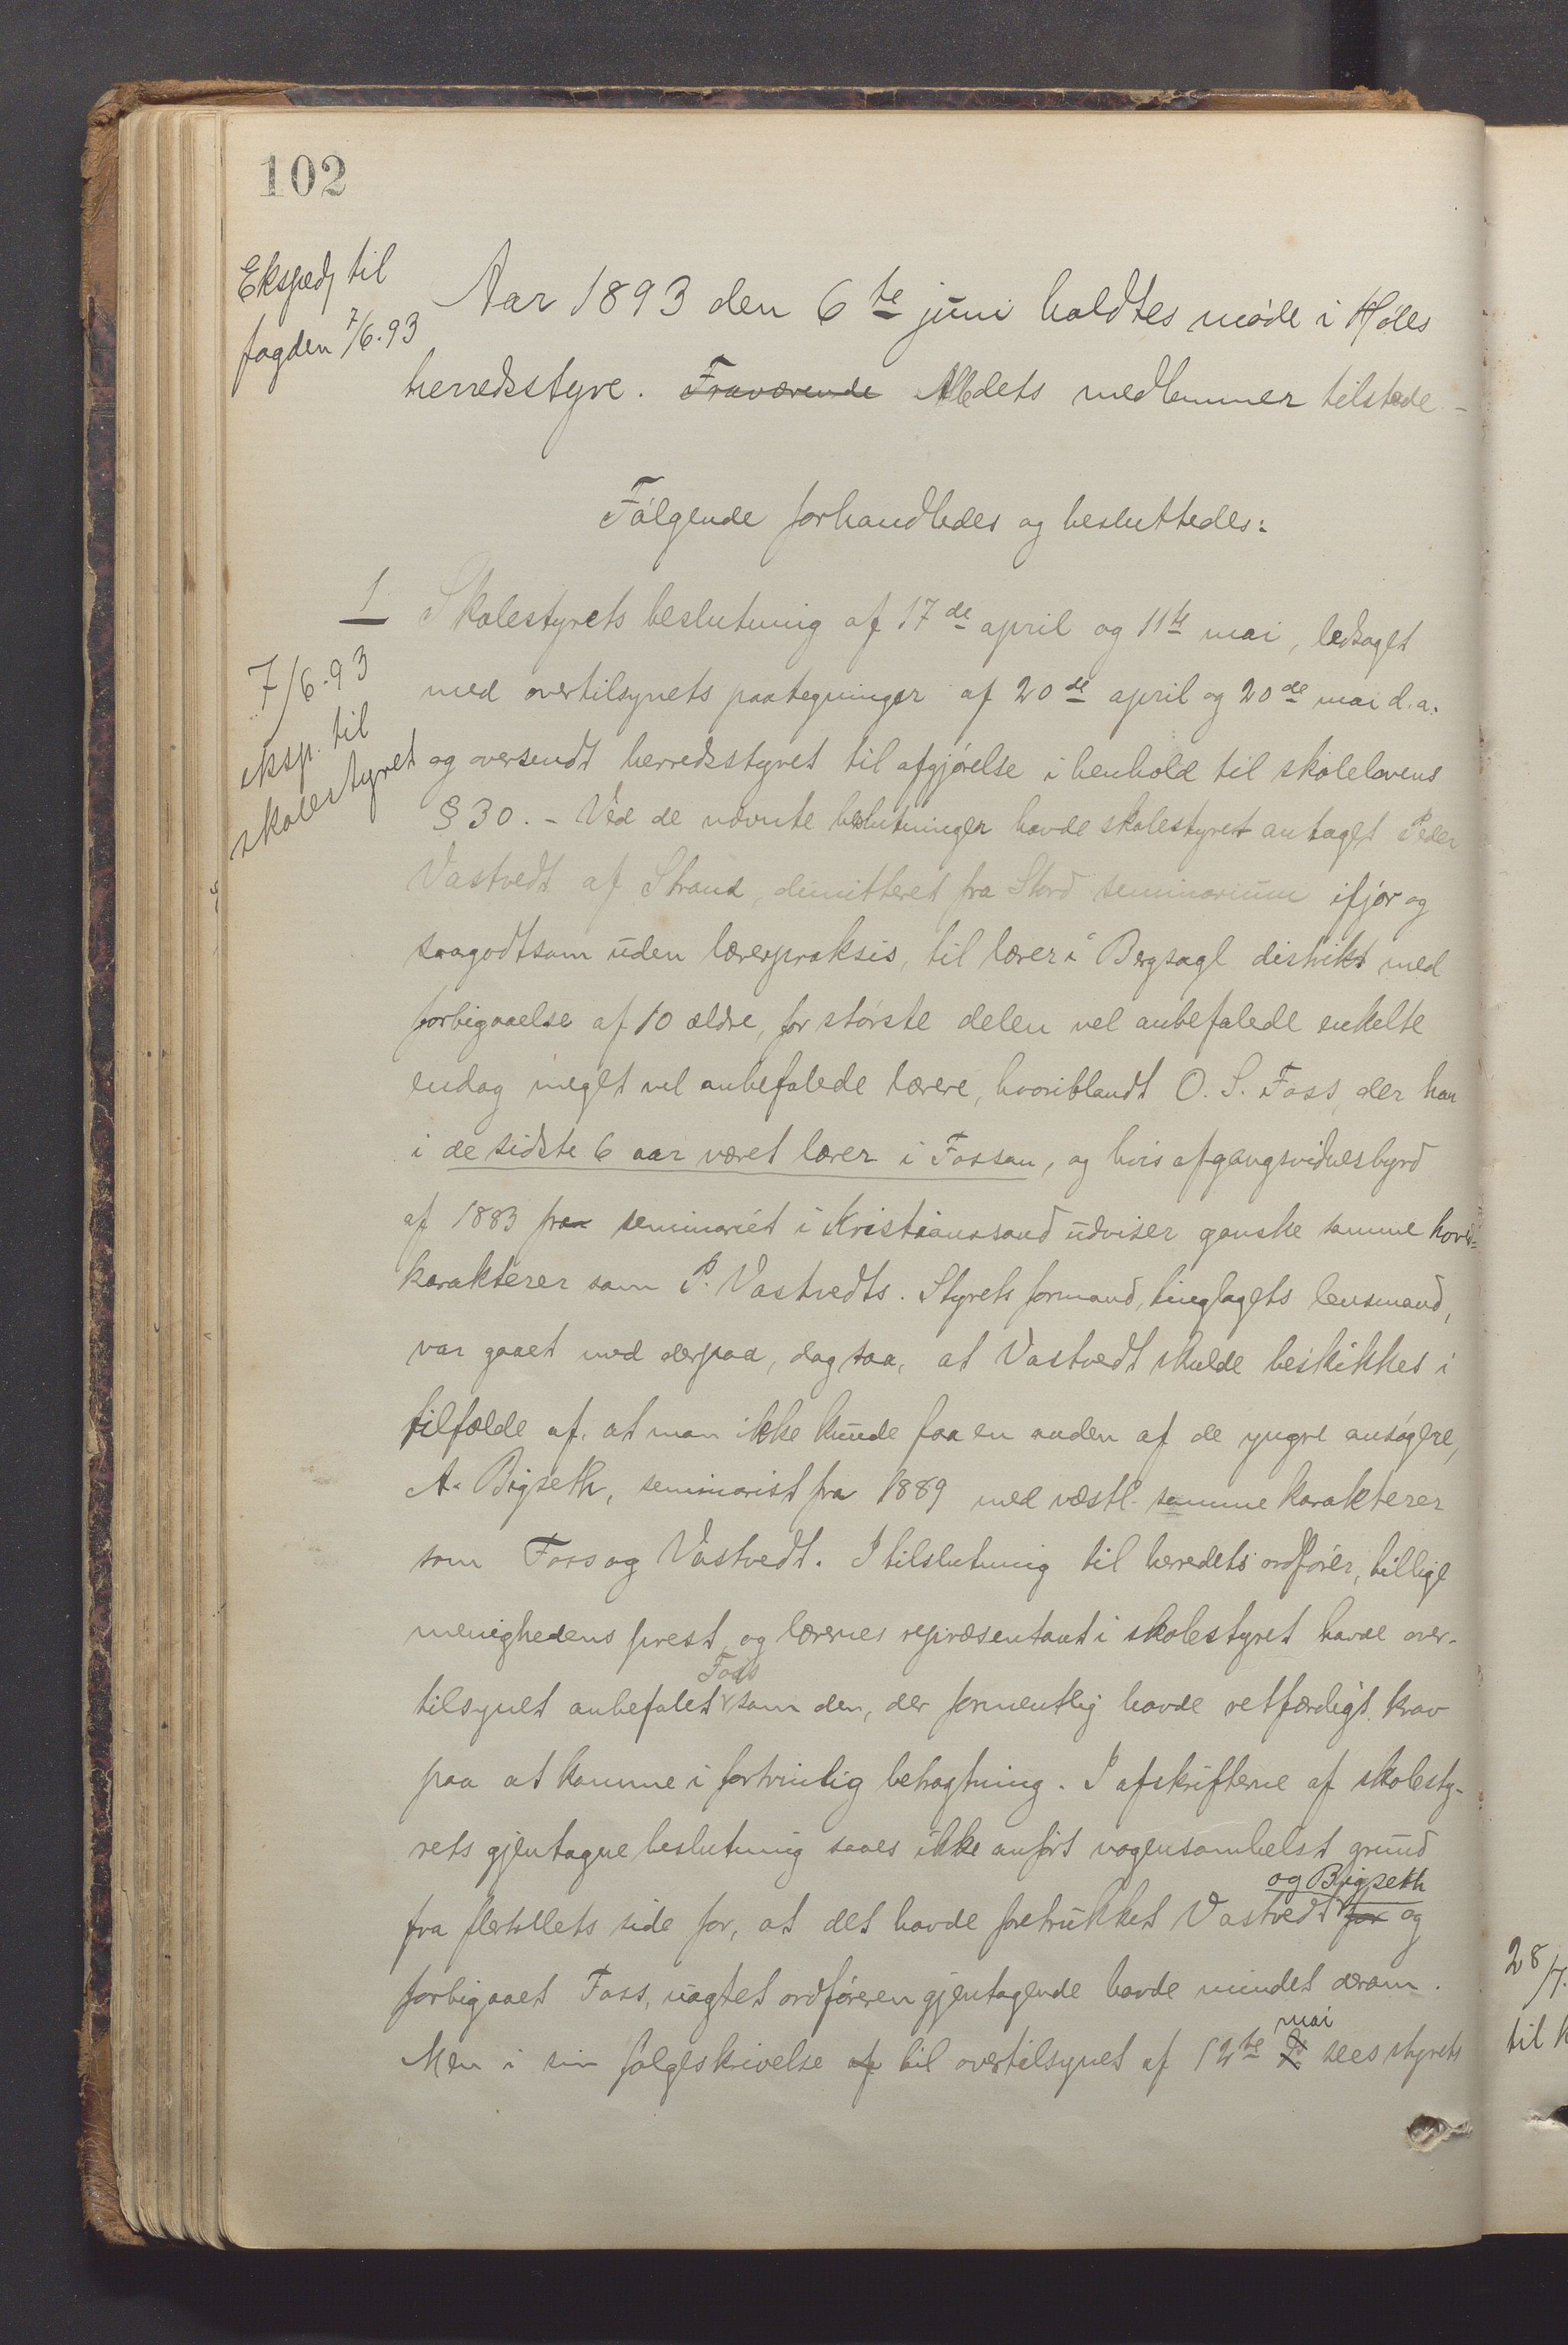 102
Eksped. til
fogden 7/6.93
Aar 1893 den 6te juni holdtes møde i Høles
herredsstyre. Fraværende Alle dets medlemmer tilstede -
Følgende forhandledes og besluttedes:
1
Skolestyrets beslutning af 17de april og 11te mai, ledsaget
7/6.93
eksp. til
skolestyret
med overtilsynets paategninger af 20de april og 20de mai d.a.
og oversendt herredsstyret til afgjørelse i henhold til skolelovens
§ 30. - Ved de nævnte beslutninger havde skolestyret antaget Peder
Vastvedt af Strand, dimitteret fra Stord seminarium ifjor og
saagodtsom uden lærerpraksis, til lærer i Bergsagl distrikt med
forbigaaelse af 10 ældre, for største delen vel anbefalede enkelte
endog meget vel anbefalede lærere, hvoriblandt O. S. Foss, der har
i de sidste 6 aar været lærer i Fossan, og hvis afgangsvidnesbyrd
af 1883 fra seminariet i Kristianssand udviser ganske samme hoved=
karakterer som P. Vastvedts. Styrets formand, tinglagets lensmand,
var gaaet med derpaa, dog saa, at Vastvedt skulde beskikkes i
tilfælde af, at man ikke kunde faa en anden af de yngre ansøgere,
A. Bigseth, seminarist fra 1889 med væstl. samme karakterer
som Foss og Vastvedt. I tilslutning til herredets ordfører, tillige
menighedens prest, og lærernes repræsentant i skolestyret havde over-
tilsynet anbefalet Foss som den, der formentlig havde retfærdigt krav
paa at komme i fortrinlig betragtning. I afskrifterne af skolesty-
rets gjentagne beslutning saaes ikke anført nogensomhelst grund
fra flertallets side for, at det havde foretrukket Vastvedt og Bigseth for og
forbigaaet Foss, uagtet ordføreren gjentagende havde mindet derom.
Men i sin følgeskrivelse af til overtilsynet af 12te mai sees styrets
28/7.
til